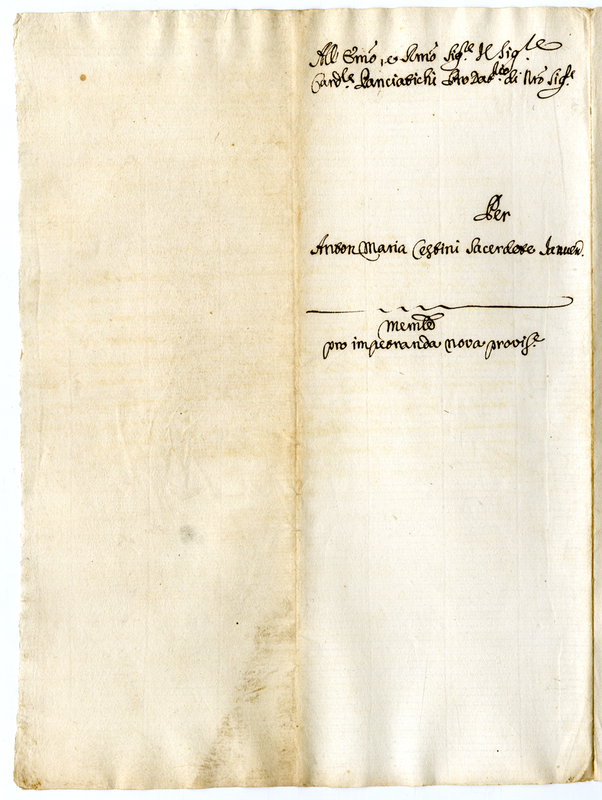 All' Emo, e Rmo Sigre Il Sigle
Cardle Panciatichi Pro Datrio di Nro Sigre
Per
Anton Maria Cestini Sacerdote Januen.
Memle
pro impetranda nova provise